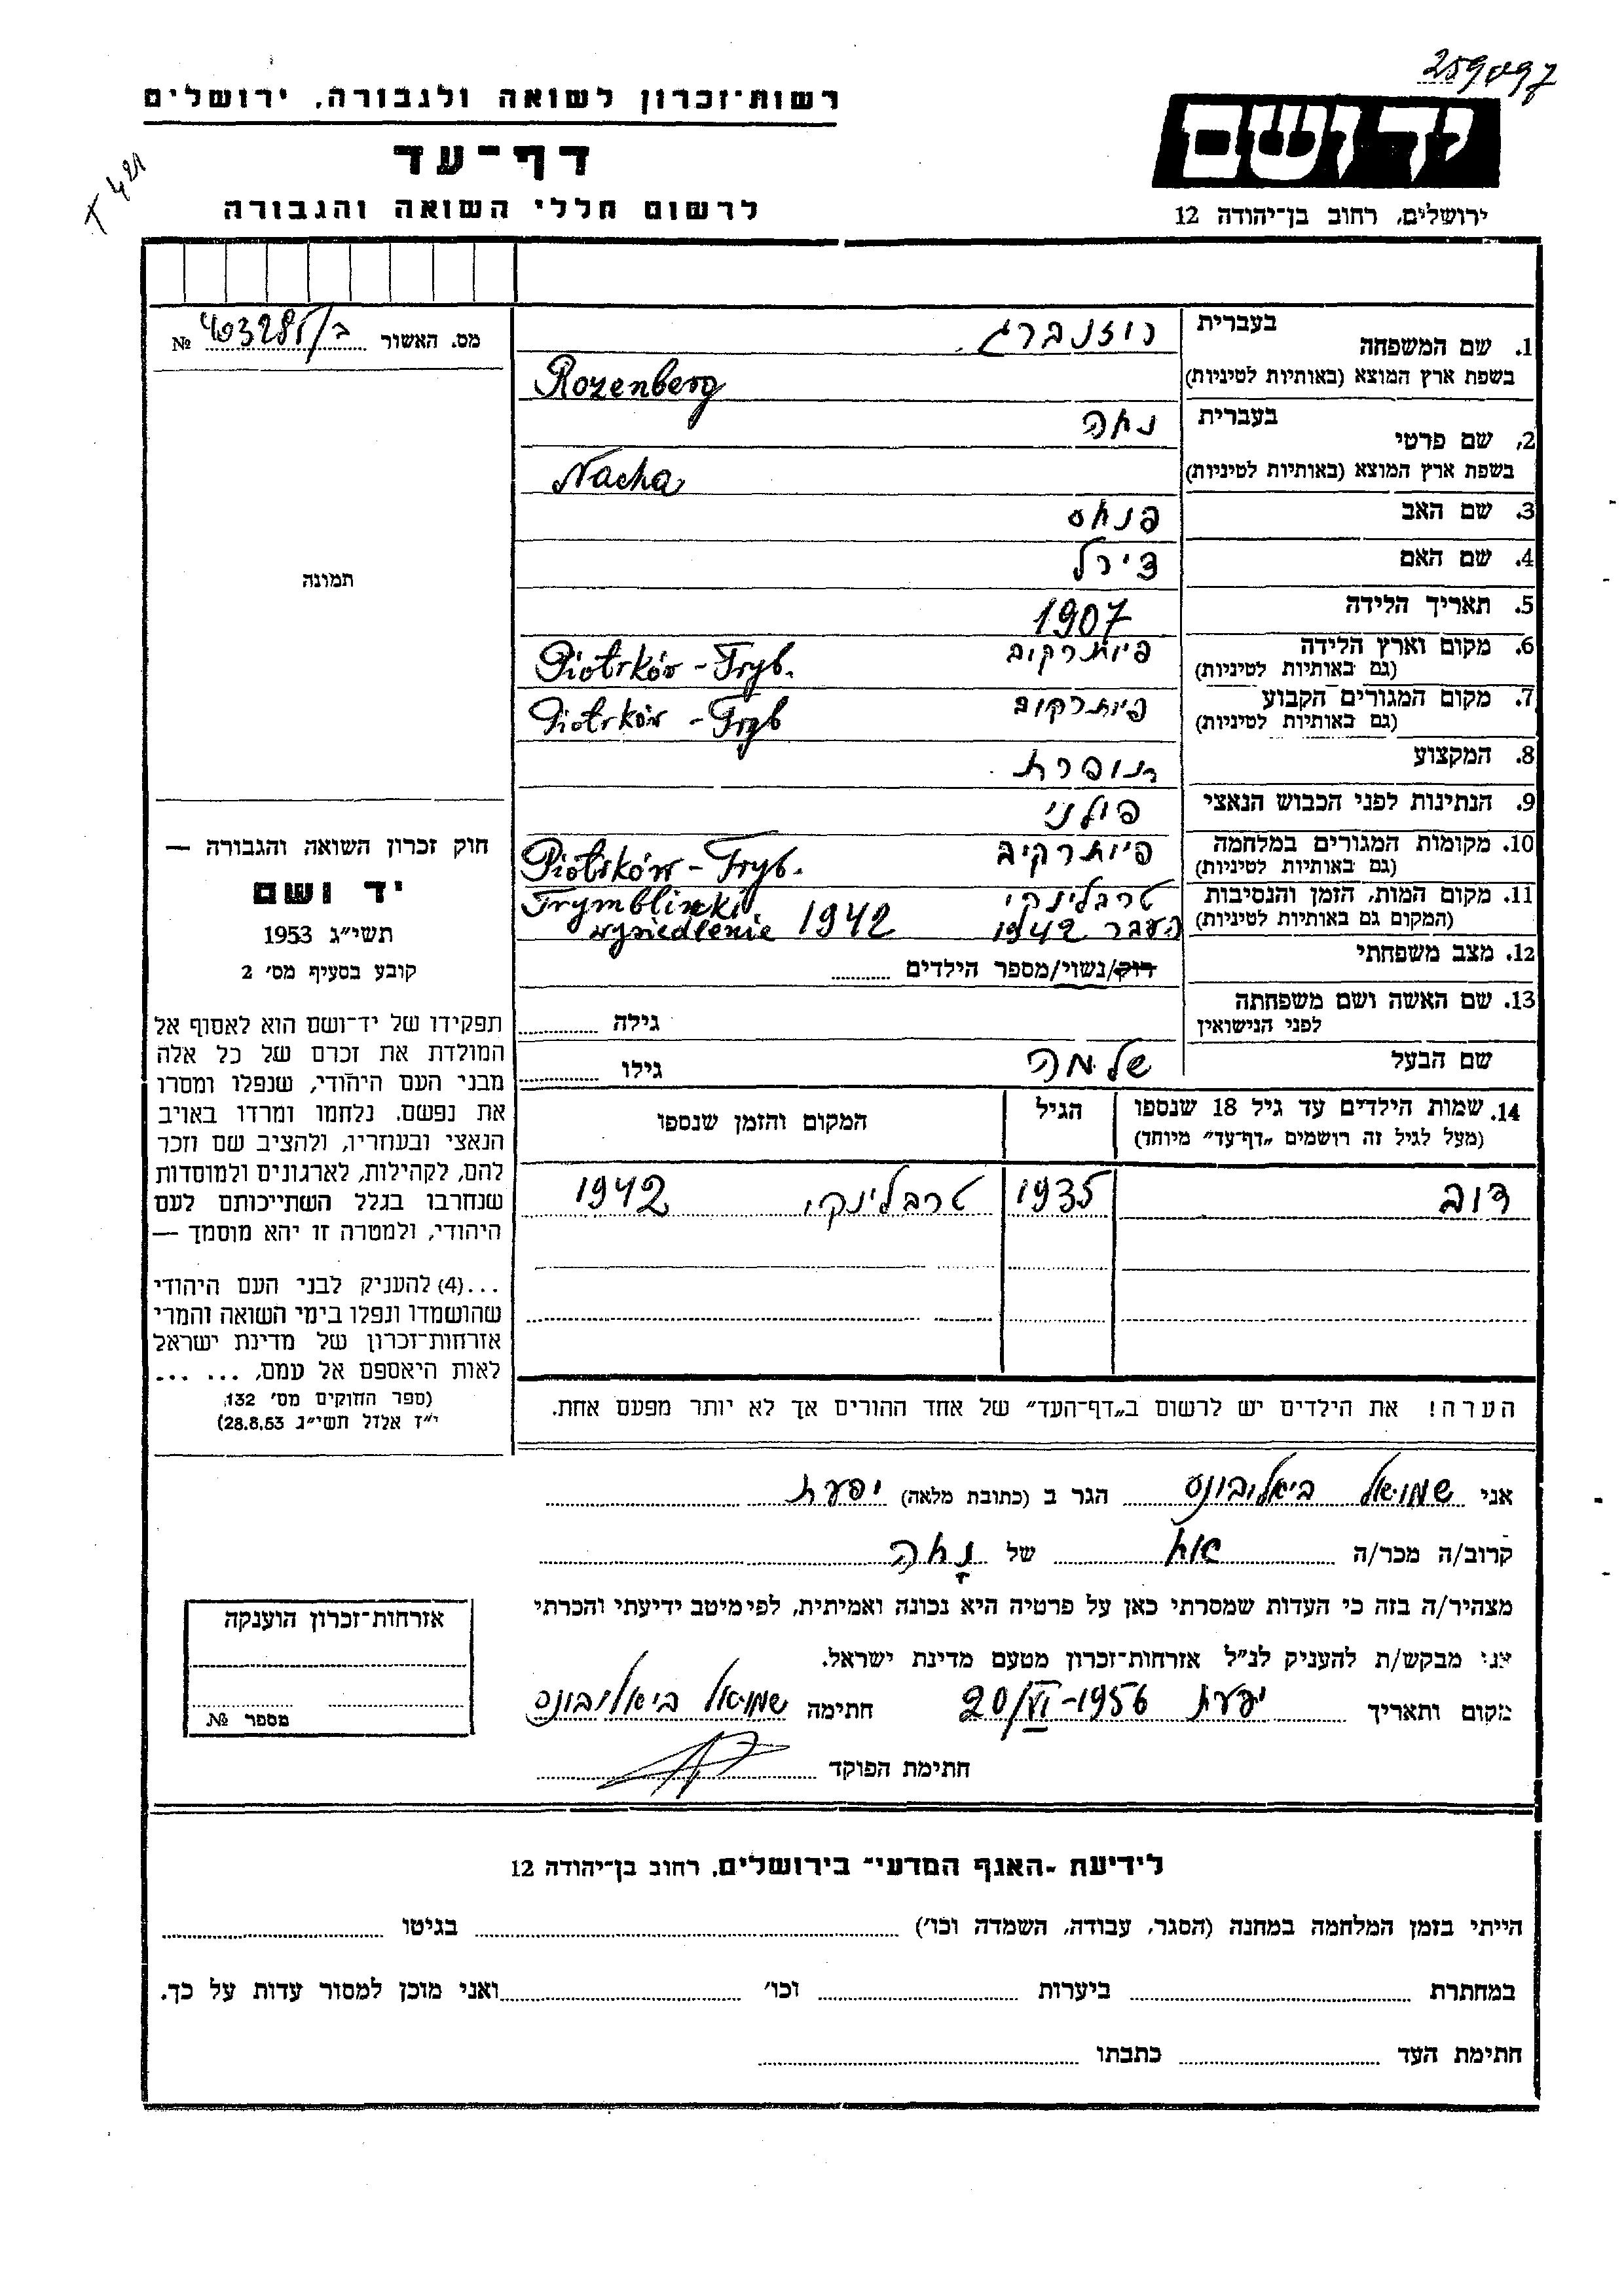 259097
רשות־זכרון לשואה ולגבורה, ירושלים
דף־עד
לרשום חללי השואה והגבורה
T 421
יד ושם
ירושלים, רחוב בן־יהודה 12
מס. האשור ב/403285 №
תמונה
בעברית
1. שם המשפחה רוזנברג
בשפת ארץ המוצא (באותיות לטיניות) Rozenberg
בעברית
2. שם פרטי נאחה
בשפת ארץ המוצא (באותיות לטיניות) Nacha
3. שם האב פנחס
4. שם האם צירל
5. תאריך הלידה 1907
6. מקום וארץ הלידה פיוטרקוב Piotrków - Tryb.
(גם באותיות לטיניות)
7. מקום המגורים הקבוע פיוטרקוב Piotrków - Tryb
(גם באותיות לטיניות)
8. המקצוע תופרת
9. הנתינות לפני הכבוש הנאצי פולני
10. מקומות המגורים במלחמה Piotrków - Tryb.
(גם באותיות לטיניות)
11. מקום המות, הזמן והנסיבות טרבלינקי Trymblinki
(המקום גם באותיות לטיניות) העבר 1942 wysiedlenie 1942
12. מצב משפחתי
רוק/נשוי/מספר הילדים
13. שם האשה ושם משפחתה
לפני הנישואין גילה
שם הבעל שלמה גילו
14. שמות הילדים עד גיל 18 שנספו הגיל המקום והזמן שנספו
(מעל לגיל זה רושמים „דף־עד” מיוחד)
דוב 1935 טרבלינקי 1942
הערה! את הילדים יש לרשום ב„דף־העד” של אחד ההורים אך לא יותר מפעם אחת.
חוק זכרון השואה והגבורה —
יד ושם
תשי״ג 1953
קובע בסעיף מס׳ 2
תפקידו של יד־ושם הוא לאסוף אל
המולדת את זכרם של כל אלה
מבני העם היהודי, שנפלו ומסרו
את נפשם, נלחמו ומרדו באויב
הנאצי ובעוזריו, ולהציב שם וזכר
להם, לקהילות, לארגונים ולמוסדות
שנחרבו בגלל השתייכותם לעם
היהודי, ולמטרה זו יהא מוסמך —
...(4) להעניק לבני העם היהודי
שהושמדו ונפלו בימי השואה והמרי
אזרחות־זכרון של מדינת ישראל
לאות היאספם אל עמם. ... ...
(ספר החוקים מס׳ 132,
י״ז אלול תשי״ג 28.8.53)
אני שמואל ביאליבונס הגר ב (כתובת מלאה) יפעת
קרוב/ה מכר/ה אח של נאחה
מצהיר/ה בזה כי העדות שמסרתי כאן על פרטיה היא נכונה ואמיתית, לפי מיטב ידיעתי והכרתי
אני מבקש/ת להעניק לנ״ל אזרחות־זכרון מטעם מדינת ישראל.
מקום ותאריך יפעת 20/VI-1956 חתימה שמואל ביאליבונס
חתימת הפוקד
אזרחות־זכרון הוענקה
מספר №
לידיעת „האגף המדעי” בירושלים, רחוב בן־יהודה 12
הייתי בזמן המלחמה במחנה (הסגר, עבודה, השמדה וכו׳) בגיטו
במחתרת ביערות וכו׳ ואני מוכן למסור עדות על כך.
חתימת העד כתבתו